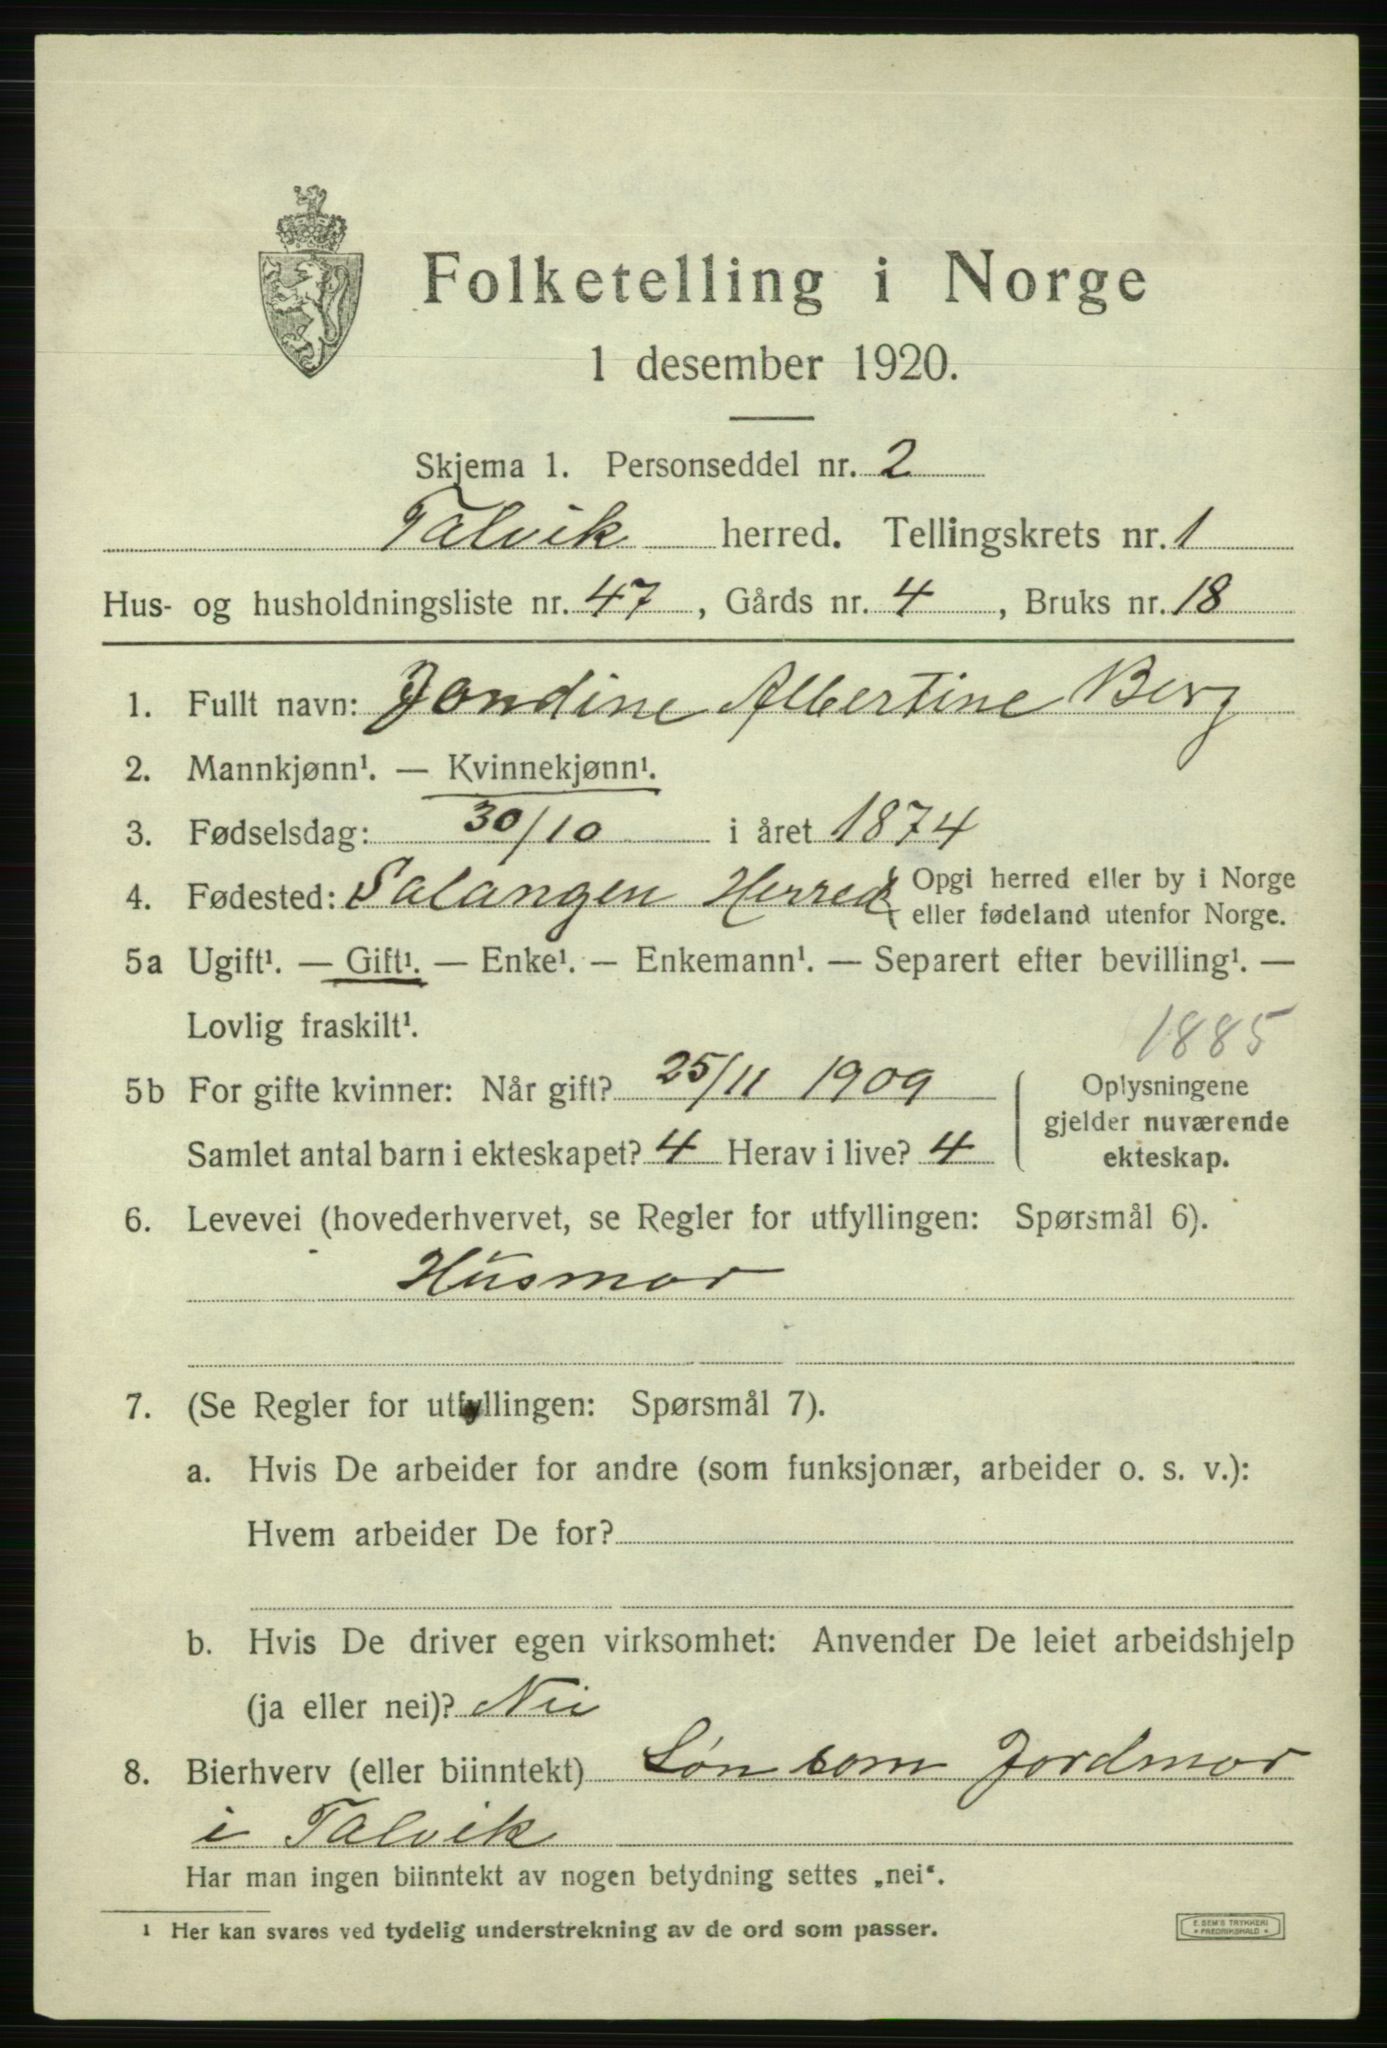 Folketelling i Norge
1 desember 1920.
Skjema 1. Personseddel nr. 2
Talvik herred. Tellingskrets nr. 1
Hus- og husholdningsliste nr. 47, Gårds nr. 4, Bruks nr. 18
1. Fullt navn: Jondine Albertine Berg
2. Mannkjønn¹. — Kvinnekjønn¹.
3. Fødselsdag: 30/10 i året 1874
4. Fødested: Salangen Herred { Opgi herred eller by i Norge
eller fødeland utenfor Norge.
5a Ugift¹. — Gift¹. — Enke¹. — Enkemann¹. — Separert efter bevilling¹. —
Lovlig fraskilt¹.
1885
5b For gifte kvinner: Når gift? 25/11 1909
Samlet antal barn i ekteskapet? 4 Herav i live? 4
Oplysningene
gjelder nuværende
ekteskap.
6. Levevei (hovederhvervet, se Regler for utfyllingen: Spørsmål 6).
Husmor
7. (Se Regler for utfyllingen: Spørsmål 7).
a. Hvis De arbeider for andre (som funksjonær, arbeider o. s. v.):
Hvem arbeider De for?
b. Hvis De driver egen virksomhet: Anvender De leiet arbeidshjelp
(ja eller nei)? Nei
8. Bierhverv (eller biinntekt) Løn som Jordmor
i Talvik
Har man ingen biinntekt av nogen betydning settes „nei“.
¹ Her kan svares ved tydelig understrekning av de ord som passer.
E. SEM'S TRYKKERI
• FREDRIKSHALD •